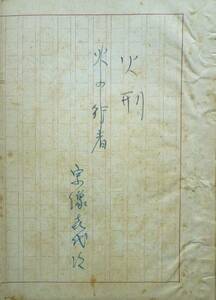 火刑
火の行者
宗像喜代次